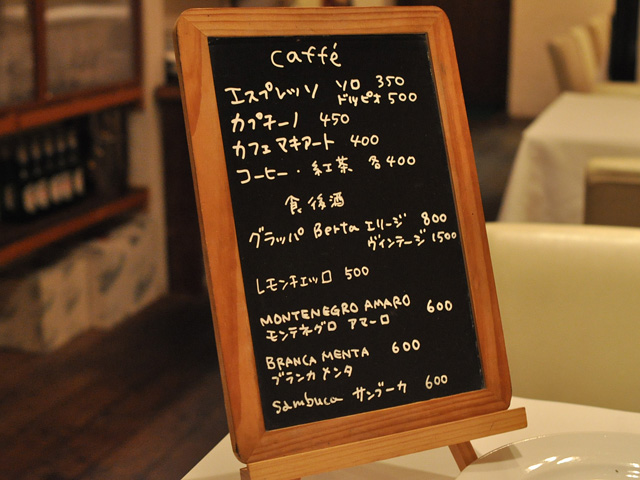 Caffé
エスプレッソ ソロ 350
ドッピオ 500
カプチーノ 450
カフェマキアート 400
コーヒー・紅茶 各400
食後酒
グラッパ Berta エリージ 800
ヴィンテージ 1500
レモンチェッロ 500
MONTENEGRO AMARO 600
モンテネグロ アマーロ
BRANCA MENTA 600
ブランカ メンタ
Sambuca サンブーカ 600